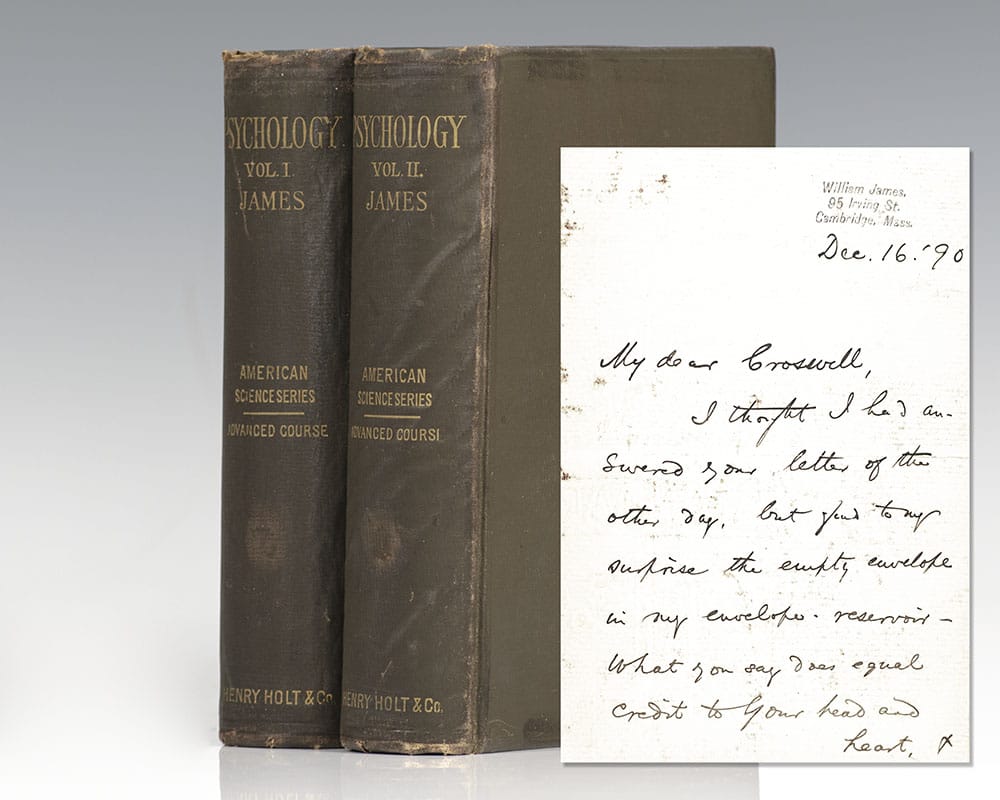 PSYCHOLOGY
VOL. I.
JAMES
AMERICAN
SCIENCE SERIES
ADVANCED COURSE
HENRY HOLT & Co.
PSYCHOLOGY
VOL. II.
JAMES
AMERICAN
SCIENCE SERIES
ADVANCED COURSE
HENRY HOLT & Co.
William James,
95 Irving St.
Cambridge, Mass.
Dec. 16. '90
My dear Croswell,
I thought I had an-
swered your letter of the
other day, but find to my
surprise the empty envelope
in my envelope-reservoir –
What you say does equal
credit to your head and
heart,